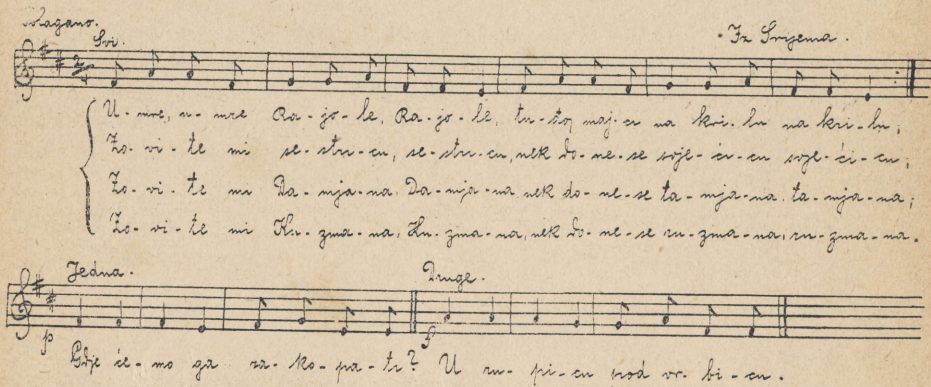 Lagano.
Svi. Iz Srijema.
2/4
U-mre, u-mre Ra-jo-le, Ra-jo-le, tu-žo, maj-ci na kri-lu na kri-lu;
Zo-vi-te mi se-stri-cu, se-stri-cu, nek do-ne-se svje-ći-cu svje-ći-cu;
Zo-vi-te mi Da-mja-na, Da-mja-na nek do-ne-se ta-mja-na, ta-mja-na;
Zo-vi-te mi Ku-zma-na, Ku-zma-na, nek do-ne-se ru-zma-na, ru-zma-na.
Jedna. Druge.
p f
Gdje će-mo ga za-ko-pa-ti? U ru-pi-cu pod vr-bi-cu.